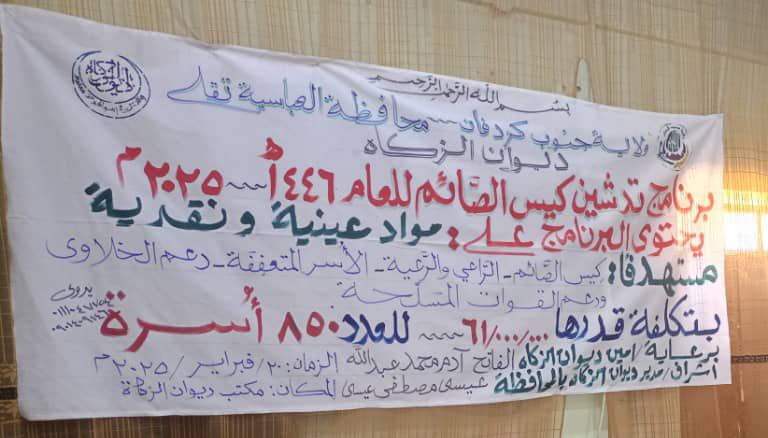 بسم الله الرحمن الرحيم
ولاية جنوب كردفان محافظة العباسية تقلي
ديوان الزكاه
برنامج تدشين كيس الصَّائم للعام ١٤٤٦هـ ٢٠٢٥م
يحتوى البرنامج على: مواد عينية ونقدية
مستهدفا: كيس الصَّائم - الرَّاعي والرَّعية - الأسر المتعففة - دعم الخلاوى
ودعم القوات المسلحة
بتكلفة قدرها ٦١/٠٠٠/٠٠٠ للعدد ٨٥٠ أسرة
برعاية/ امين ديوان الزكاه الفاتح آدم محمد عبدالله الزمان: ٢٠/فبراير/٢٠٢٥م
اشراف/ مدير ديوان الزكاه بالمحافظة عيسى مصطفى عيسى المكان: مكتب ديوان الزكاة
بدوى